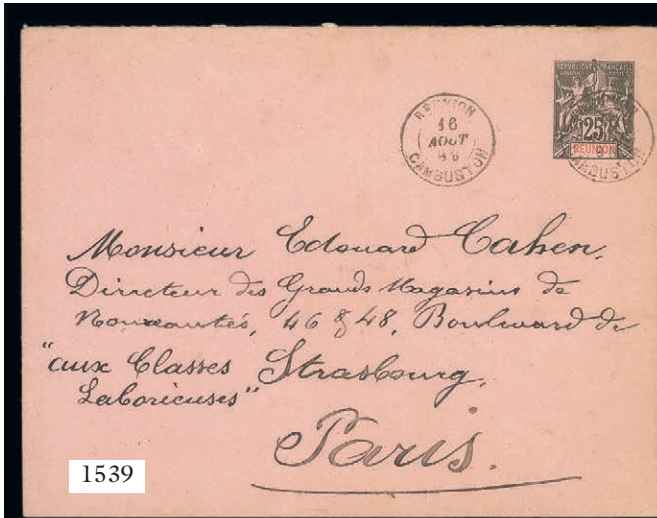 REPUBLIQUE FRANÇAISE
COLONIES POSTES
25
RÉUNION
REUNION
16
AOUT
CAMBUSTON
Monsieur Edouard Cahen,
Directeur des Grands Magasins de
Nouveautés, 46 & 48, Boulevard de
"aux Classes Strasbourg,
Laborieuses"
Paris.
1539